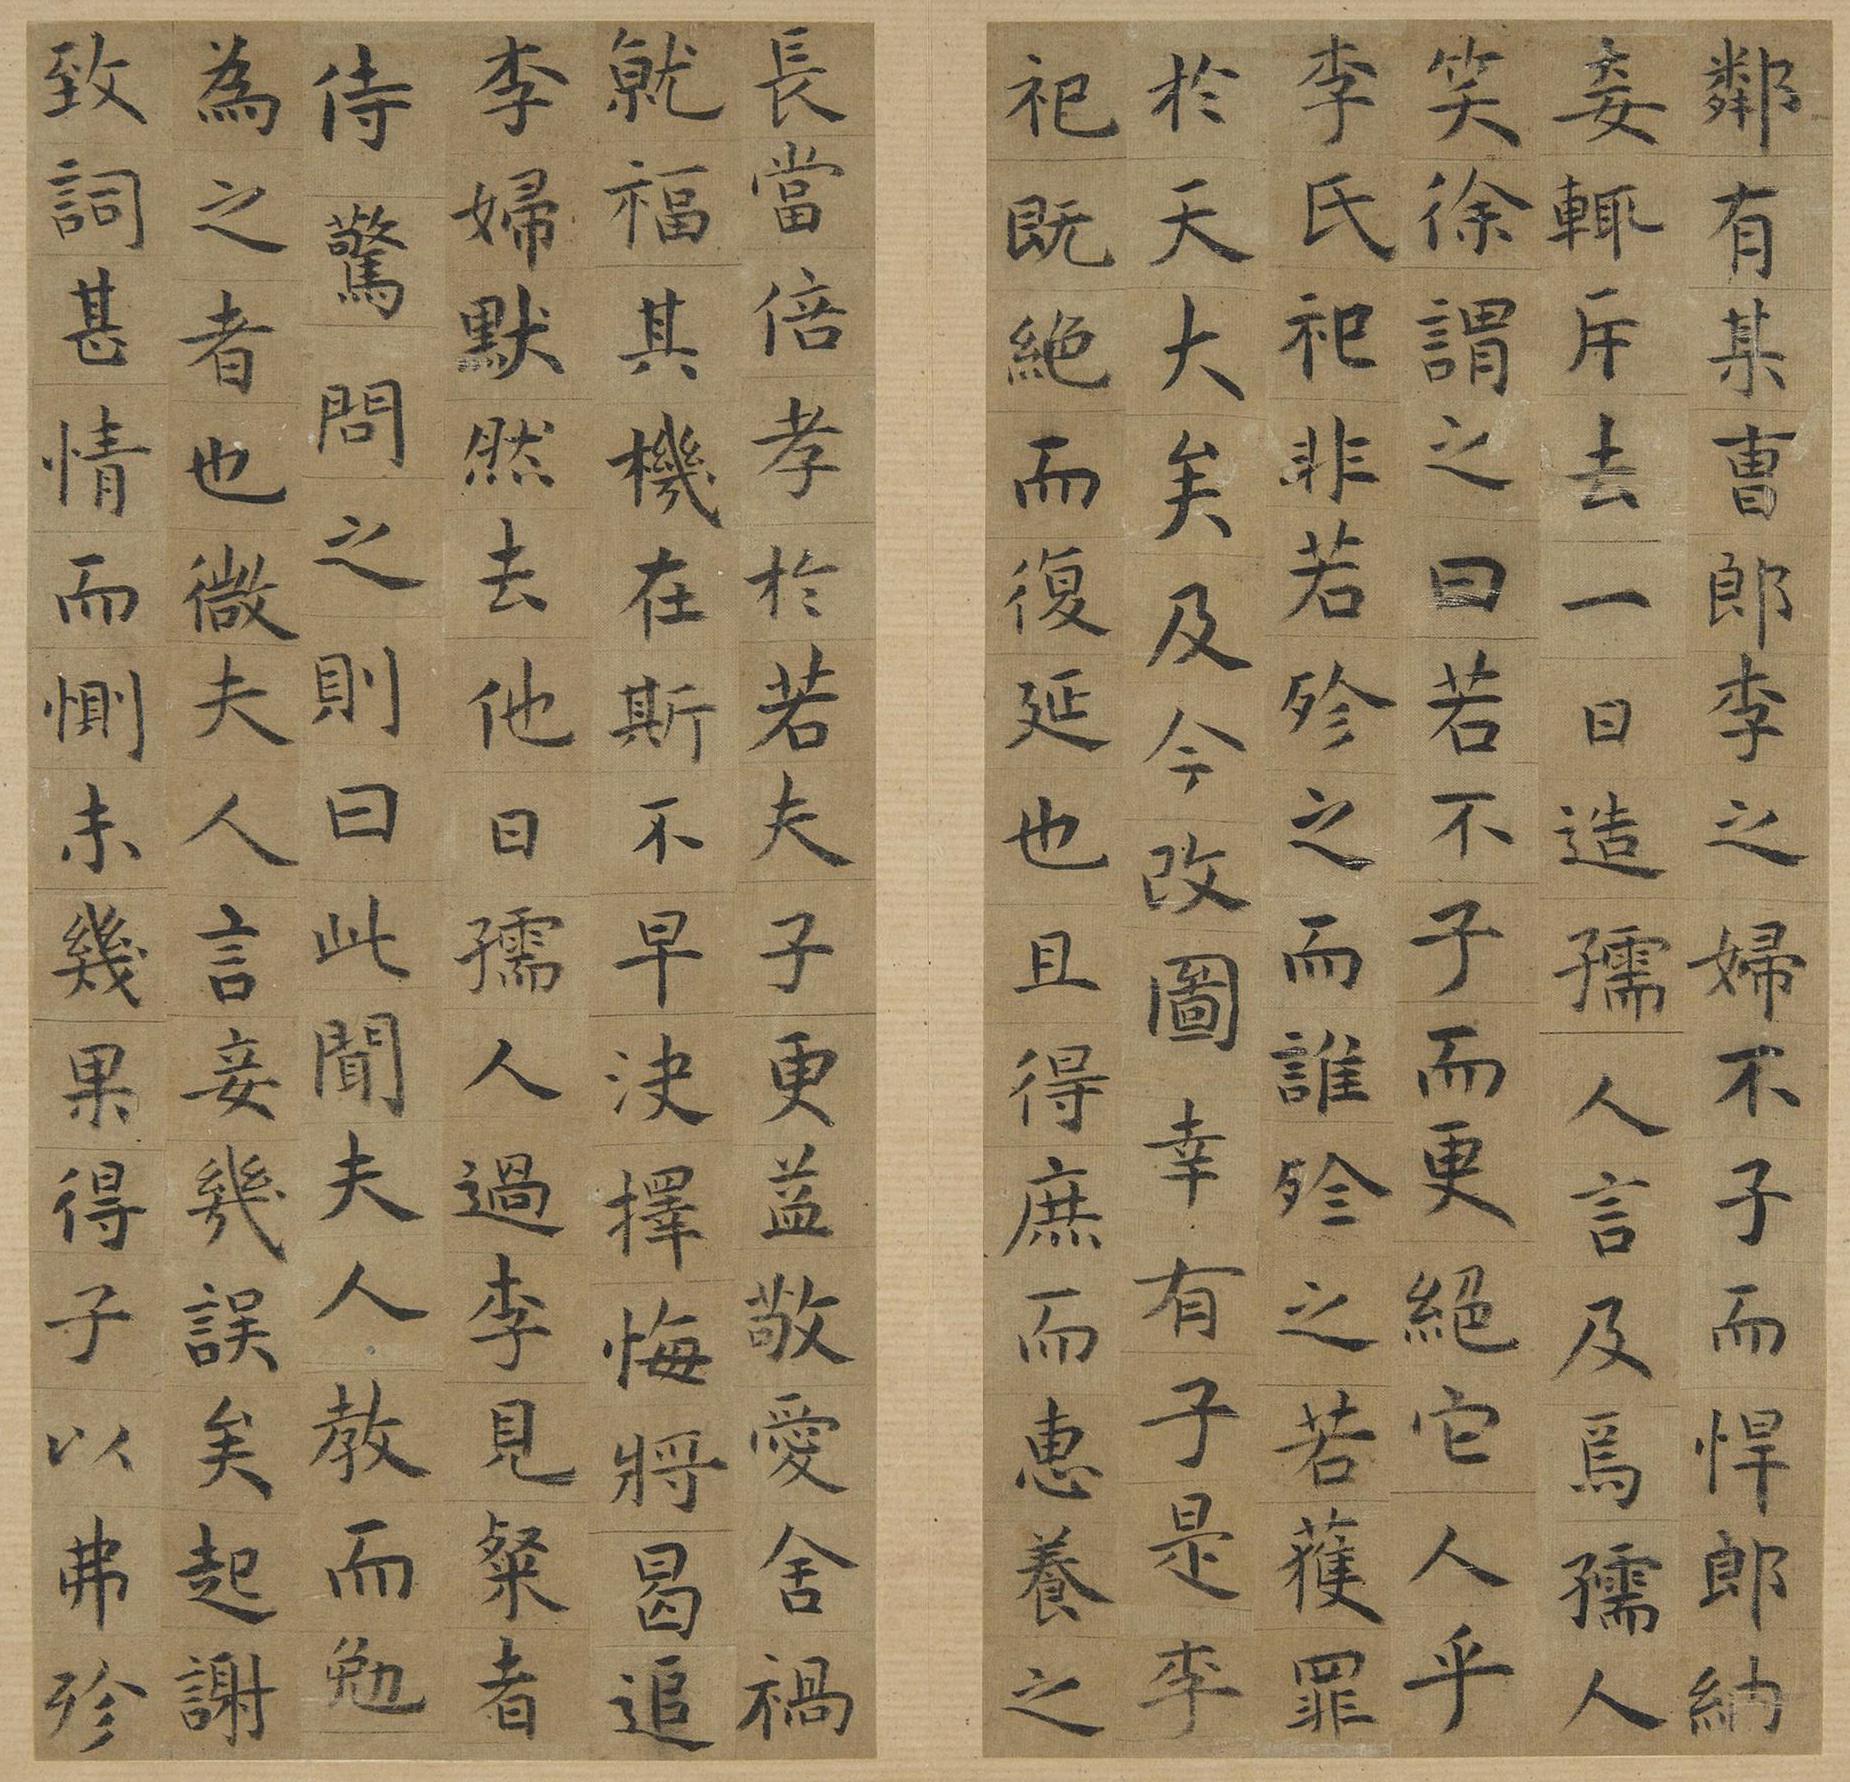 鄰有某曹郎李之婦不子而悍郎納
妾輒斥去一日造孺人言及焉孺人
笑徐謂之曰若不子而更絕它人乎
李氏祀非若殄之而誰殄之若獲罪
於天大矣及今改圖幸有子是李
祀既絕而復延也且得庶而惠養之
長當倍孝於若夫子更益敬愛舍禍
就福其機在斯不早決擇悔將曷追
李婦默然去他日孺人過李見粲者
侍驚問之則曰此聞夫人教而勉
為之者也微夫人言妾幾誤矣起謝
致詞甚情而惻未幾果得子以弗殄